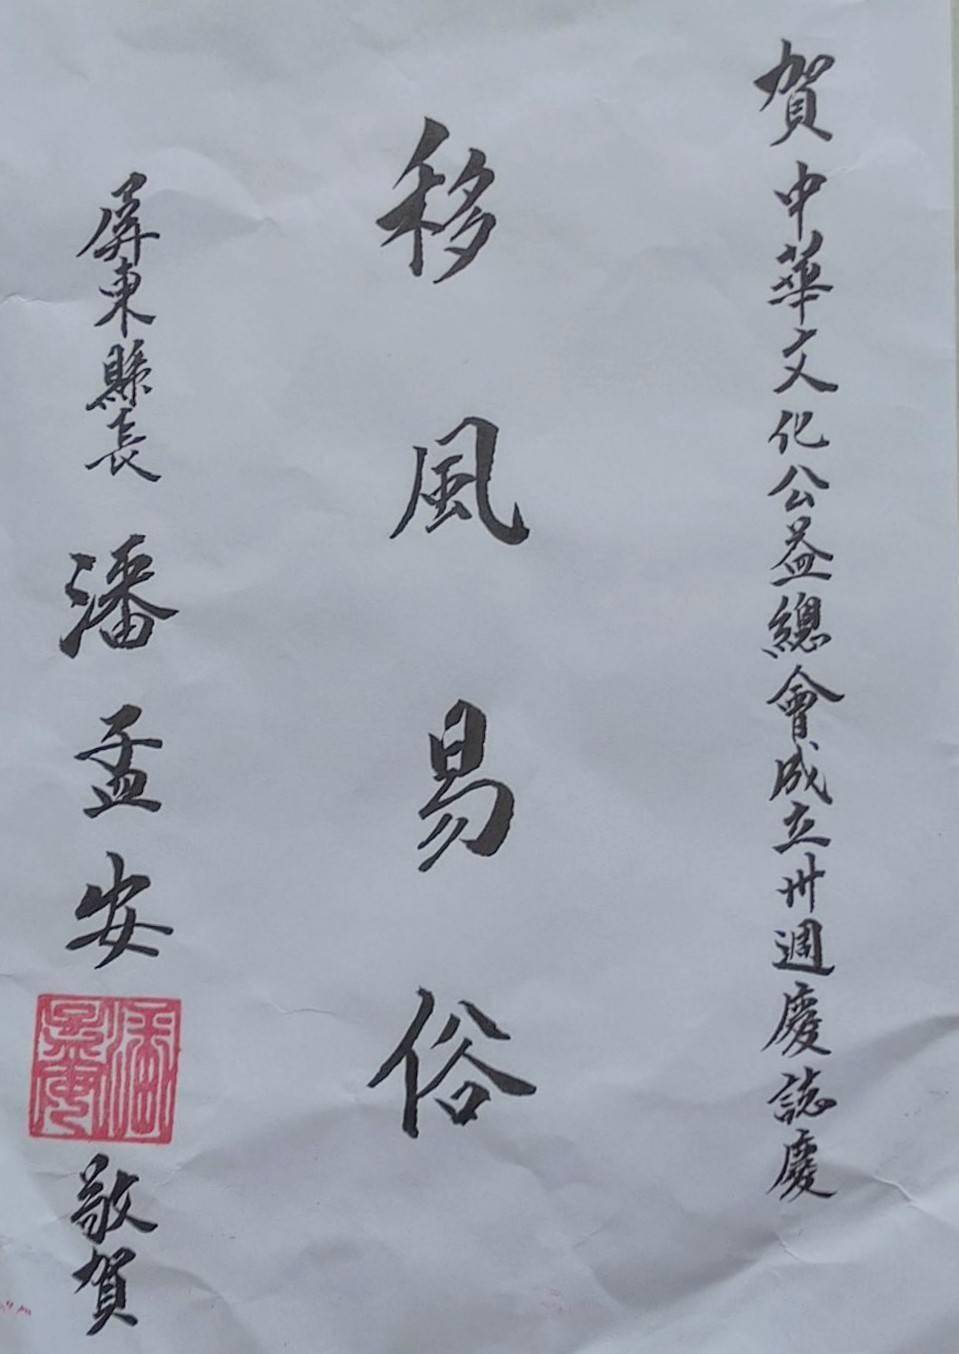 賀中華文化公益總會成立卅週慶誌慶
移風易俗
屏東縣長潘孟安
潘孟安
敬賀